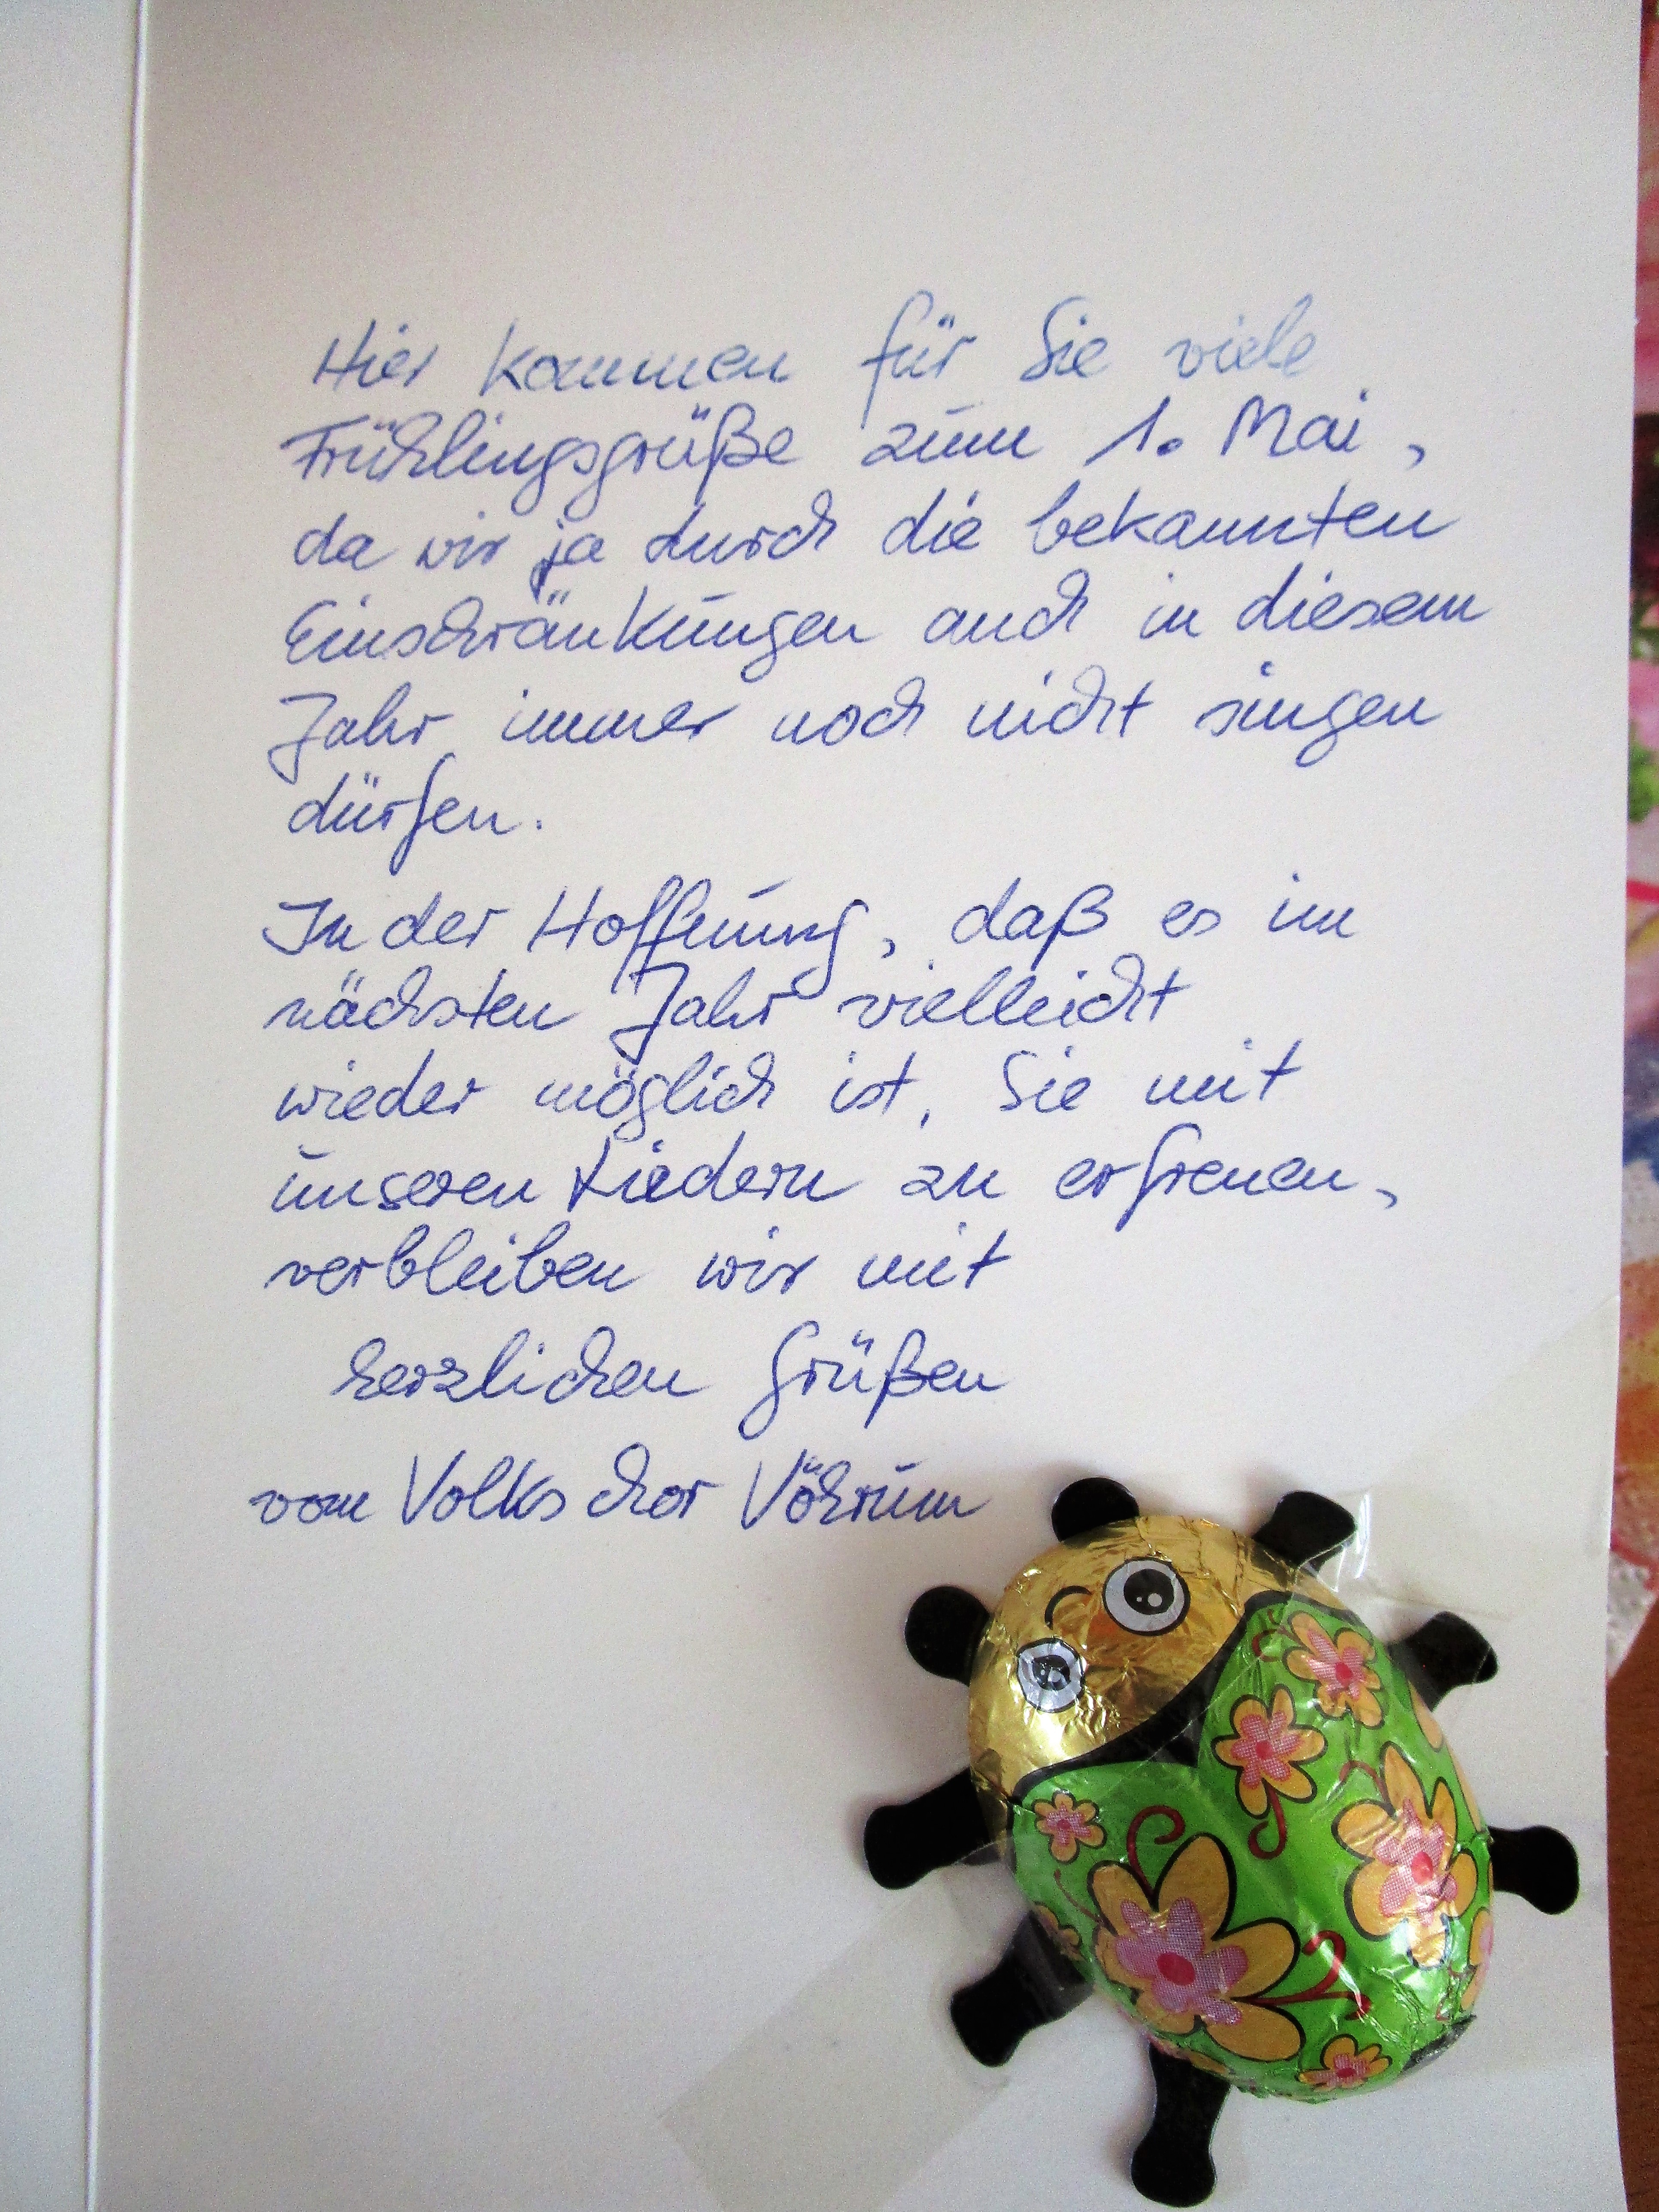 Hier kommen für Sie viele
Frühlingsgrüße zum 1. Mai,
da wir ja durch die bekannten
Einschränkungen auch in diesem
Jahr immer noch nicht singen
dürfen.
In der Hoffnung, daß es im
nächsten Jahr vielleicht
wieder möglich ist, Sie mit
unseren Liedern zu erfreuen,
verbleiben wir mit
herzlichen Grüßen
vom Volkschor Vöhrum